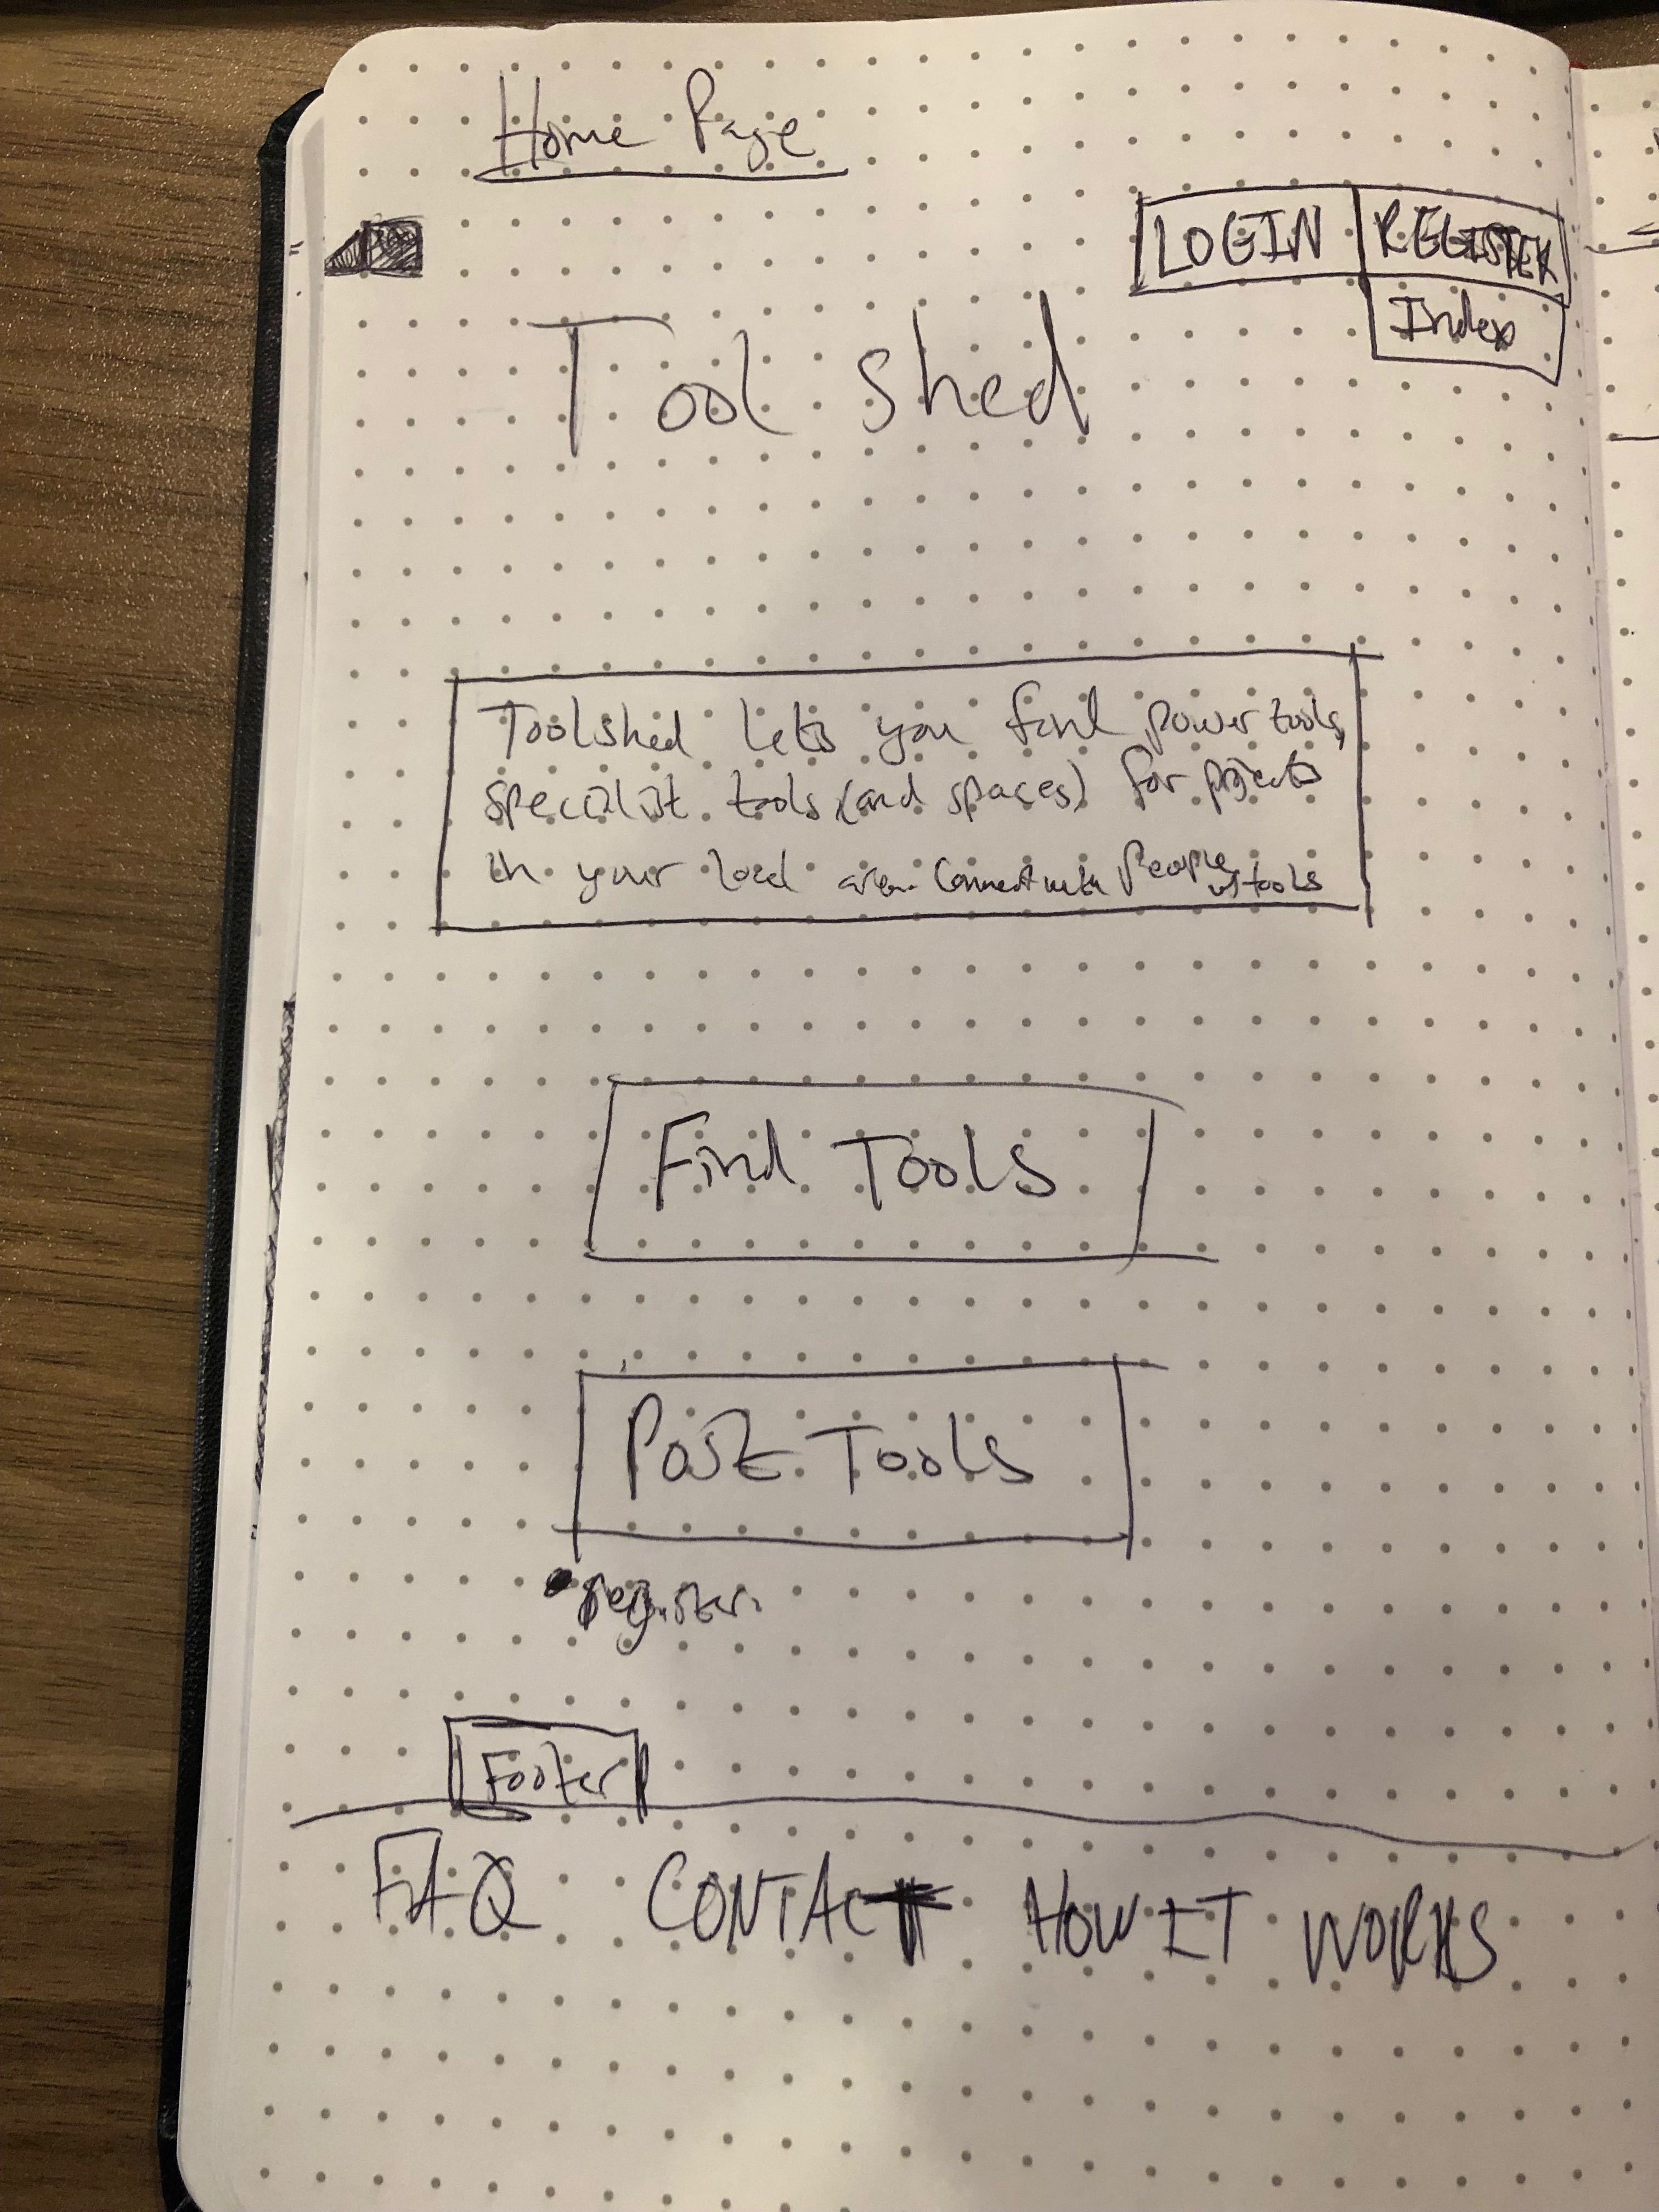 Home Page
LOGIN REGISTER
Index
Tool Shed
Toolshed lets you find power tools,
specialist tools (and spaces) for projects
in your local area. Connect with People w/ tools
Find Tools
Post Tools
register
Footer
FAQ CONTACT HOW IT WORKS